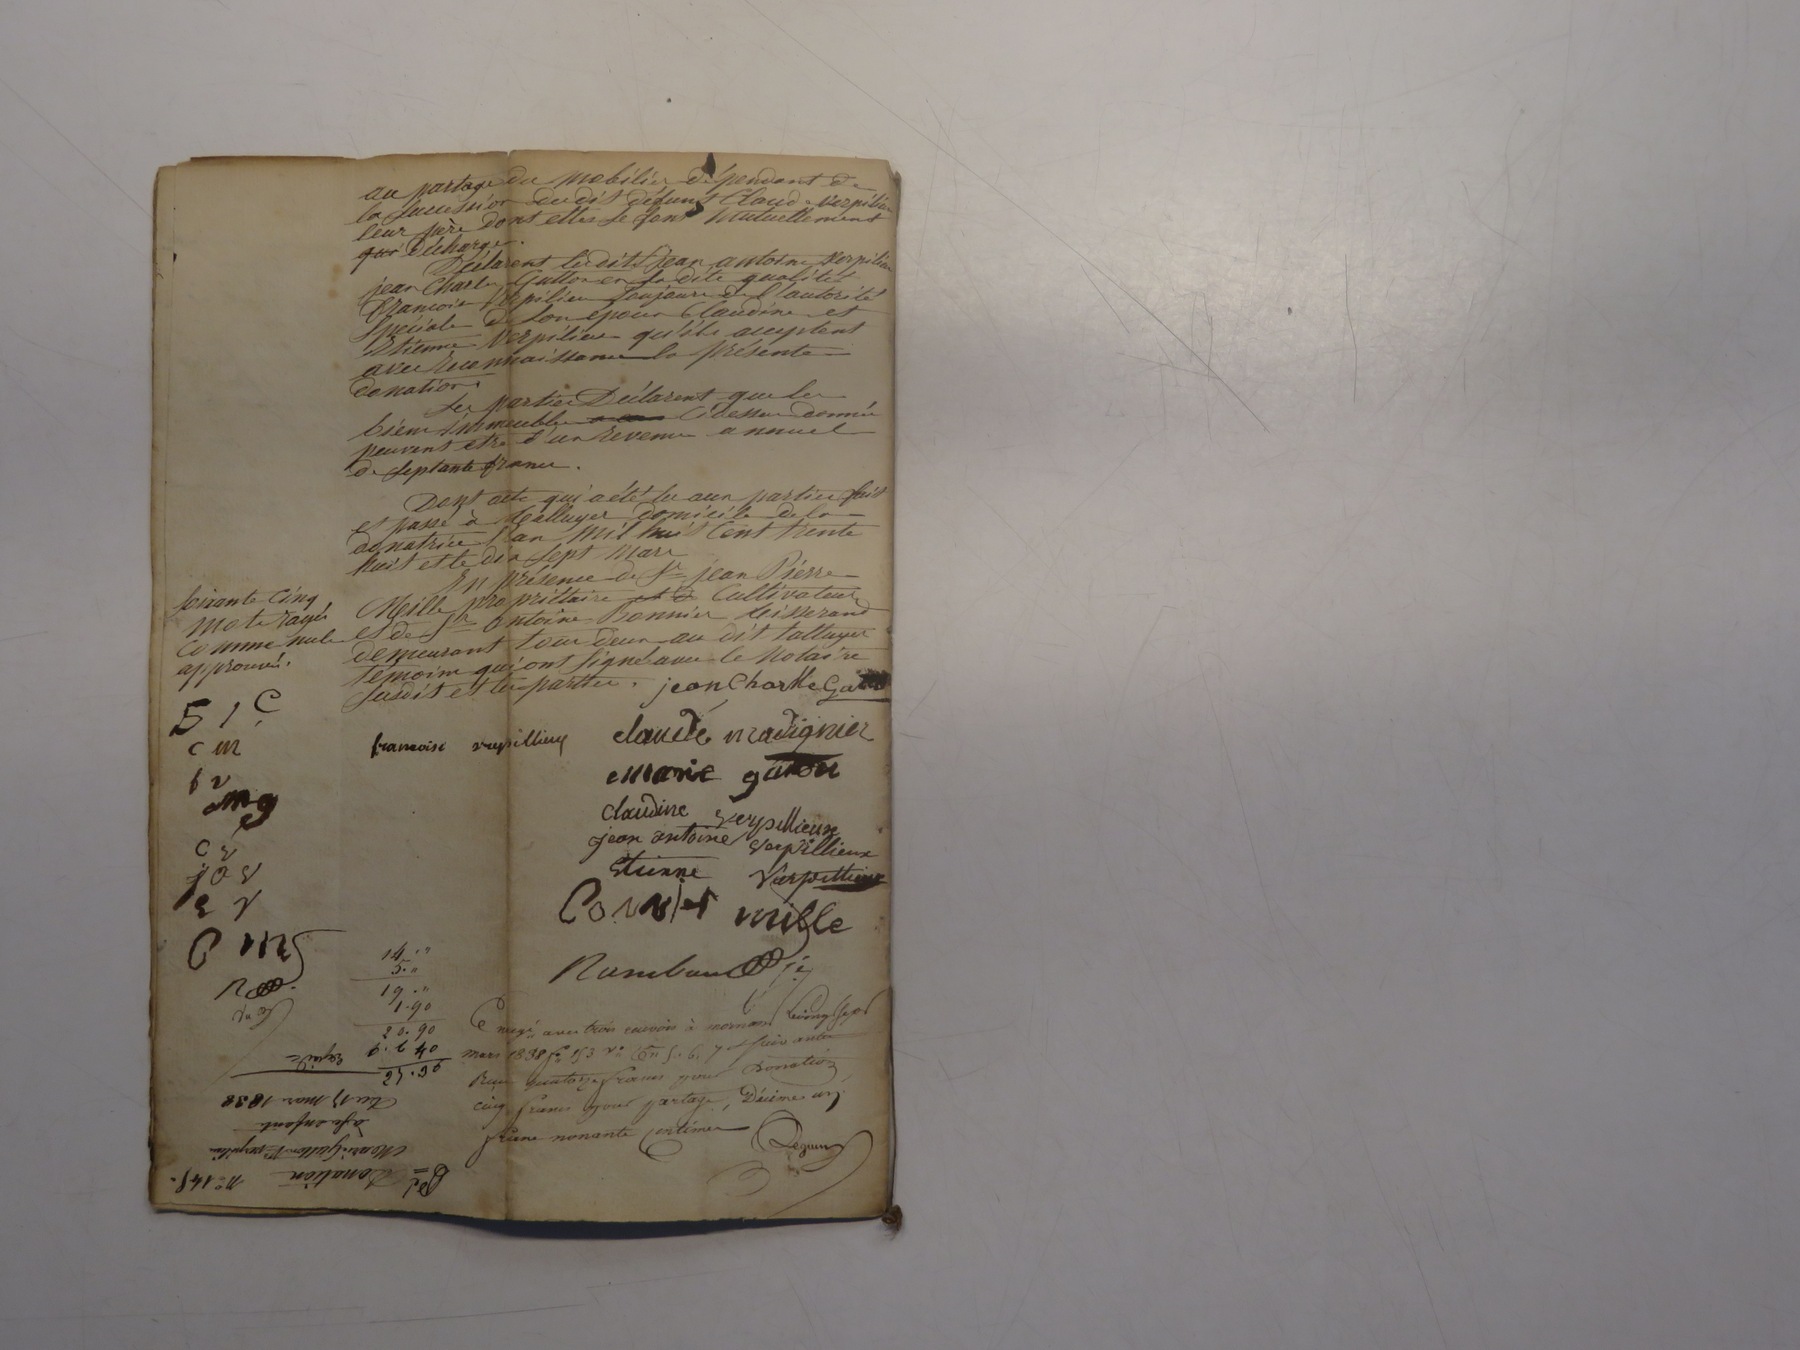 au partage du mobilier dépendant de
la succession dudit défunt Claude Verpilieu
leur père dont elles se font mutuellement
décharge.
Déclarent lesdits jean antoine Verpilieu
jean Charle Gatton en sa dite qualité
françoise Verpilieu toujours de l'autorité
spéciale de son époux Claudine et
Etienne Verpilieu qu'ils acceptent
avec reconnaissance la présente
donation.
Les parties Déclarent que les
biens immeubles cidessus donnés
peuvent etre d'un revenu annuel
de septante francs.
Dont acte qui a été lu aux parties fait
et passé à talluyer domicile de la
donatrice l'an mil huit Cent trente
huit et le dix sept mars
En présence de Sr jean Pierre
Mille propriétaire Cultivateur
et de Sr antoine Bonnier tisserand
demeurant tous deux au dit talluyer
témoins qui ont signé avec le Notaire
susdit et les parties.
soixante cinq
mots rayés
comme nuls
approuvés.
jean Charle
françoise verpillieux
claude madignier
marie gaton
claudine verpillieux
jean antoine verpillieux
Etienne Verpillieux
Bonnier mille
Rambaud
C m
f v
m g
C v
j a v
E v
14 "
5 "
19 "
1.90
20.90
Enregé avec trois renvois à mornant le vingt sept
mars 1838 fo 153 vo Cn 5. 6. 7 et suivantes
Reçu quatorze francs pour Donation
cinq francs pour partage, Décime un
franc nonante Centimes
Du 17 mars 1838
à ses enfants
Marie Gatton Ve verpilieu
Donation
No 145.